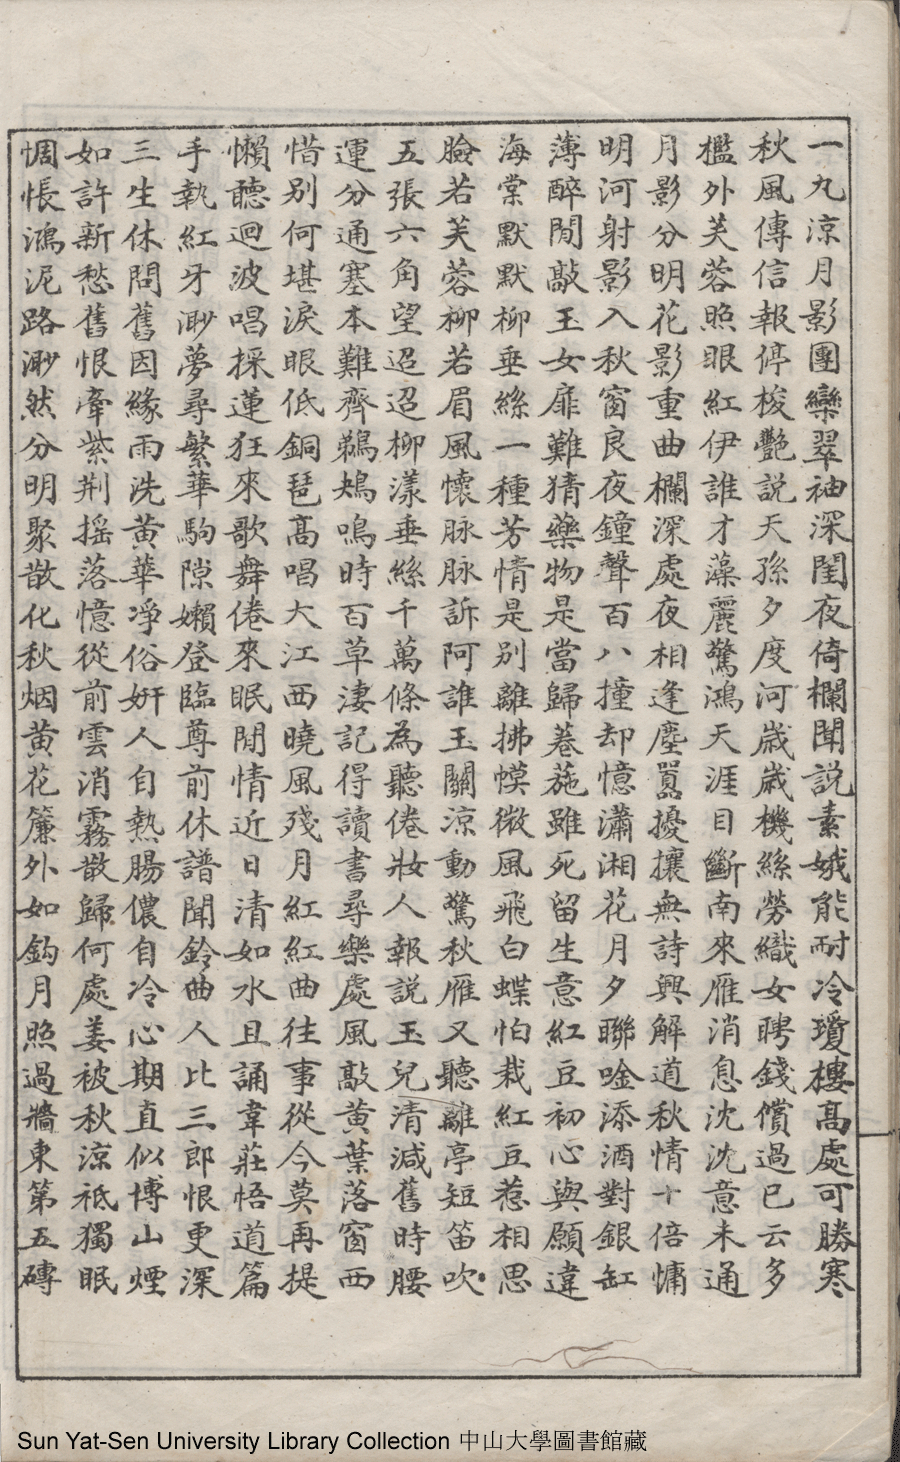 一丸涼月影團欒翠袖深閨夜倚欄聞説素娥能耐冷瓊樓髙處可勝寒
秋風傳信報停梭艷説天孫夕度河歲歲機絲勞織女聘錢償過已云多
檻外芙蓉照眼紅伊誰才藻麗驚鴻天涯目斷南來雁消息沈沈意未通
月影分明花影重曲欄深處夜相逢塵囂擾攘無詩興解道秋情十倍慵
明河射影入秋窗良夜鐘聲百八撞却憶瀟湘花月夕聯唫添酒對銀缸
薄醉閒敲玉女扉難猜藥物是當歸菤葹雖死留生意紅豆初心與願違
海棠默默柳垂絲一種芳情是别離拂幙微風飛白蝶怕栽紅豆惹相思
臉若芙蓉柳若眉風懷脉脉訴阿誰玉關涼動驚秋雁又聽離亭短笛吹
五張六角望迢迢柳漾垂絲千萬條為聽倦妝人報説玉兒清減舊時腰
運分通塞本難齊鵜鴂鳴時百草淒記得讀書尋樂處風敲黄葉落窗西
惜别何堪淚眼低銅琶髙唱大江西曉風殘月紅紅曲往事從今莫再提
懶聽迴波唱採蓮狂來歌舞倦來眠閒情近日清如水且誦韋莊悟道篇
手執紅牙渺夢尋繁華駒隙嬾登臨尊前休譜聞鈴曲人比三郎恨更深
三生休問舊因緣雨洗黄華淨俗妍人自熱腸儂自冷心期直似博山煙
如許新愁舊恨牽紫荆摇落憶從前雲消霧散歸何處姜被秋涼祗獨眠
惆悵鴻泥路渺然分明聚散化秋烟黄花簾外如鈎月照過牆東第五磚
Sun Yat-Sen University Library Collection 中山大學圖書館藏